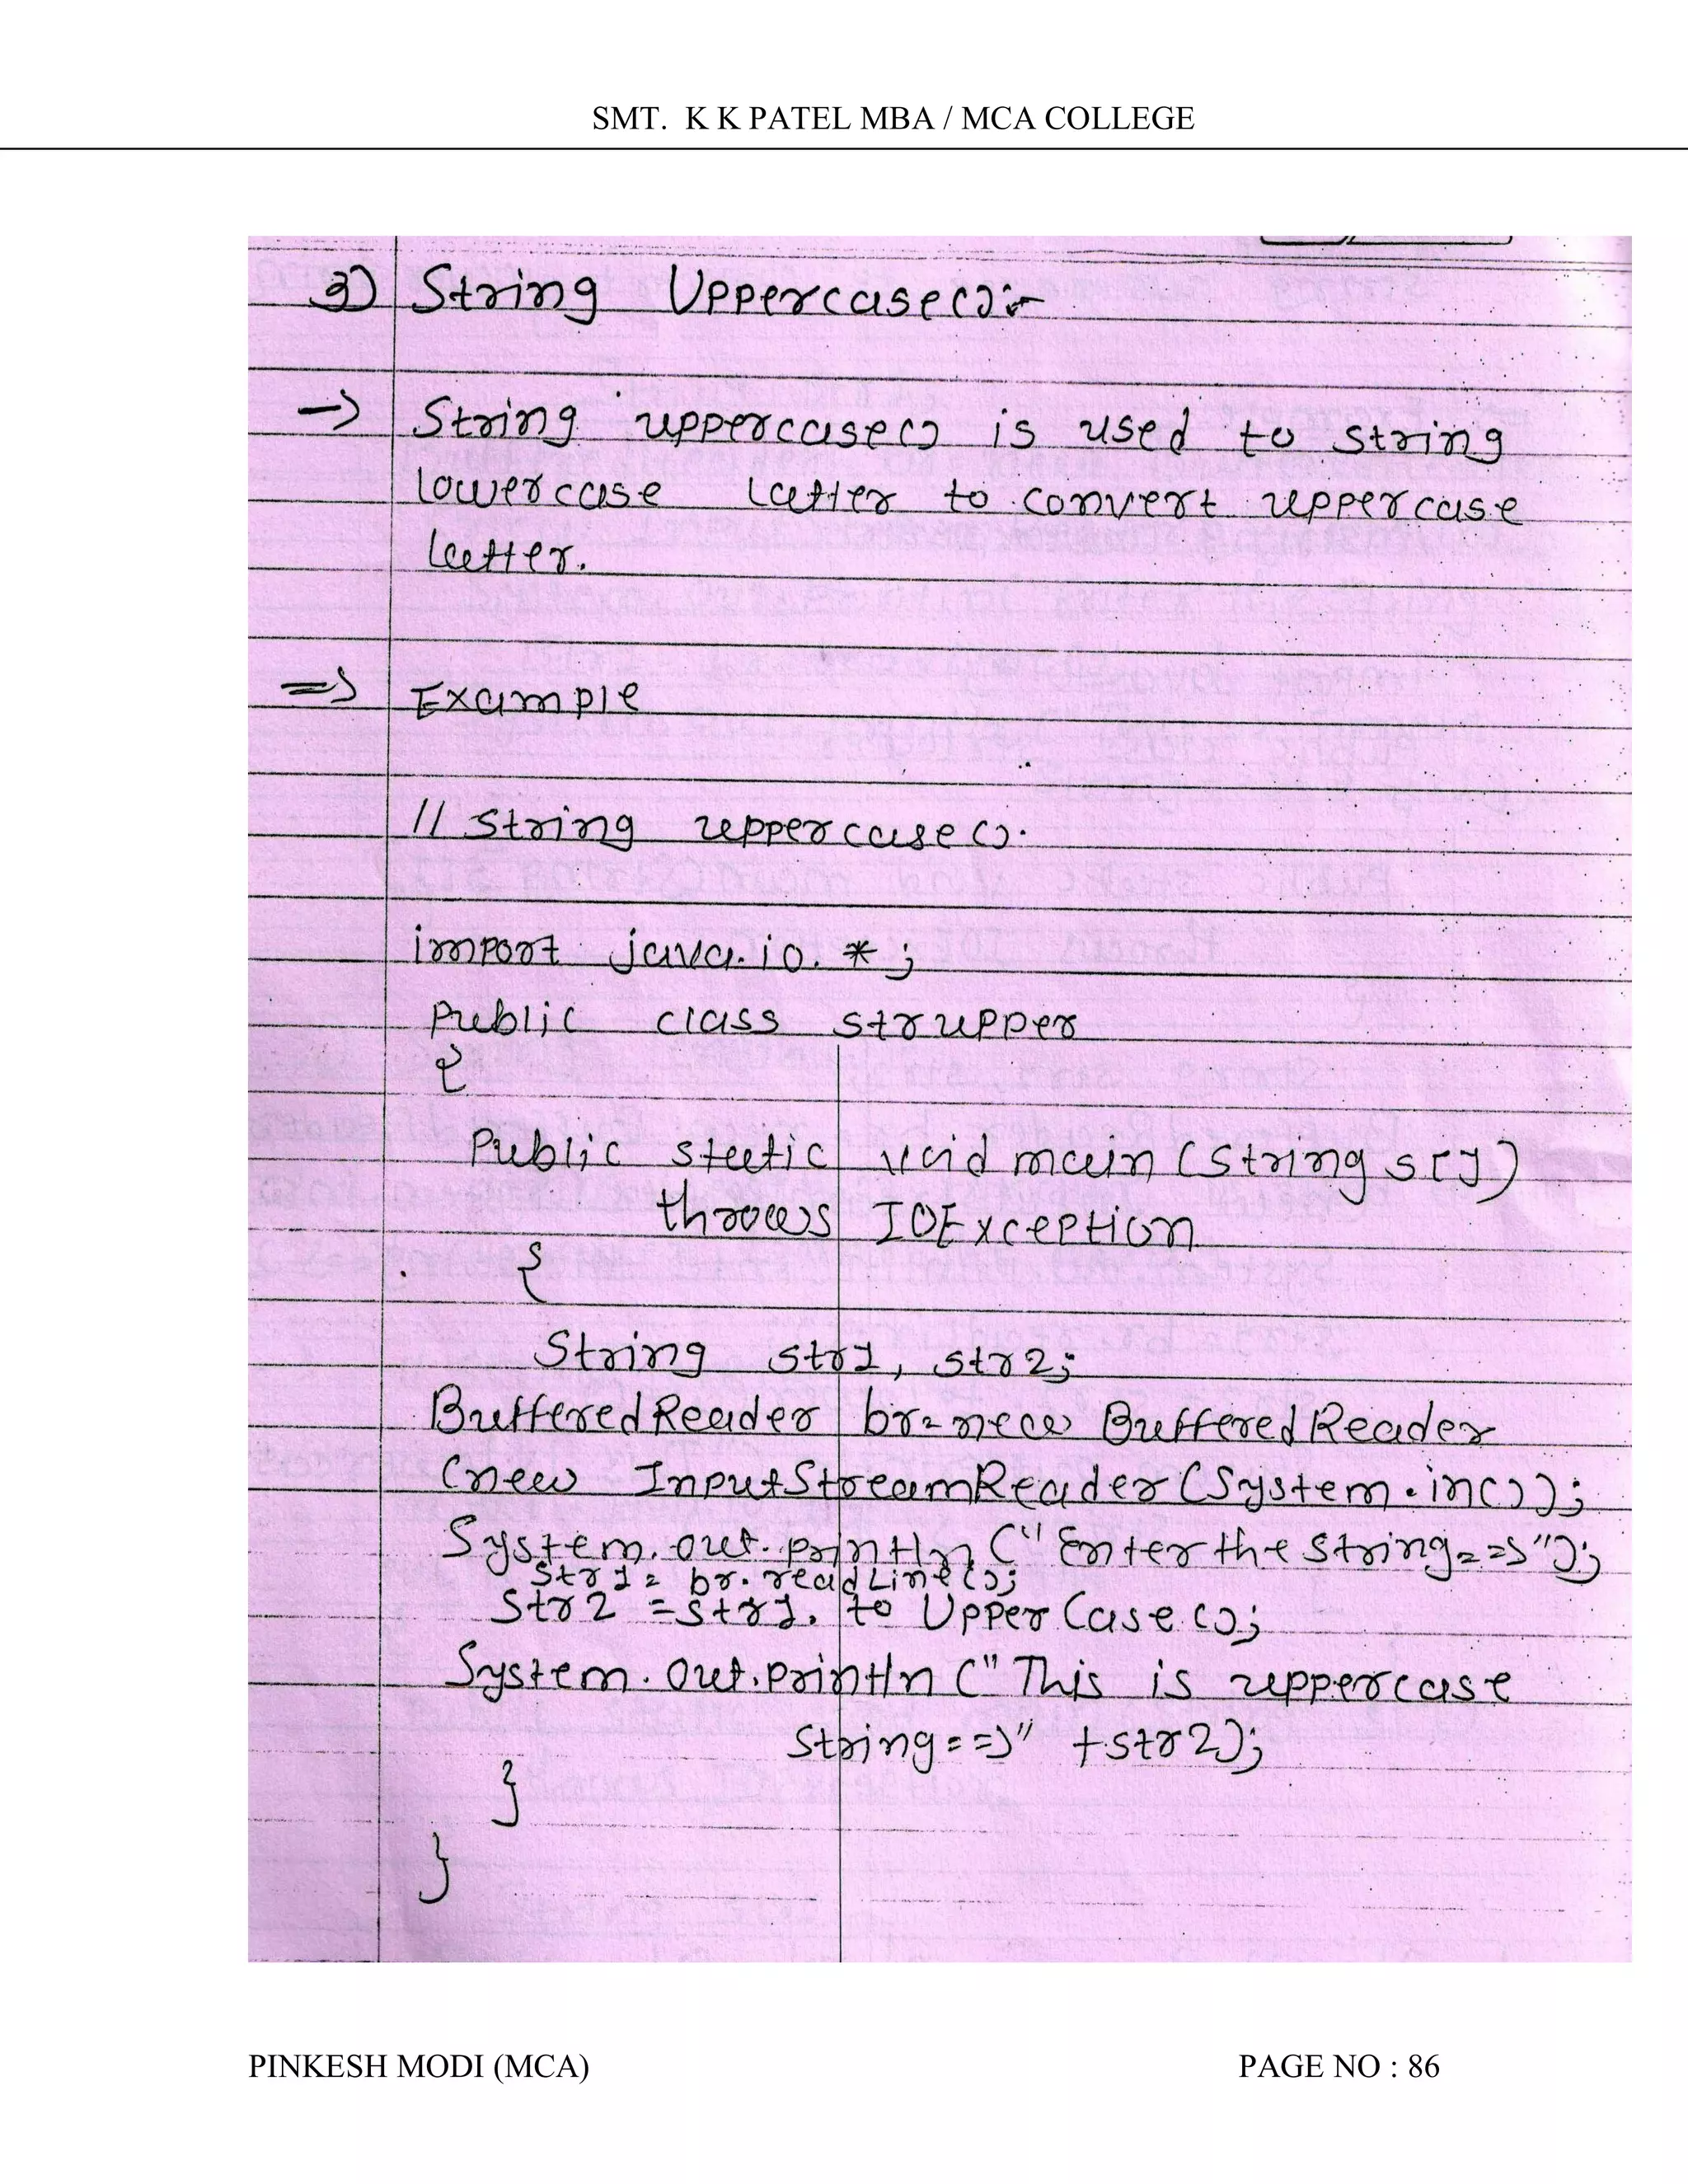 SMT. K K PATEL MBA / MCA COLLEGE
3) String Uppercase():-
-> String uppercase() is used to string
lowercase latter to convert uppercase
latter.
=> Example
// String uppercase().
import java.io.*;
Public class strupper
{
Public static void main (String s[])
throws IOException
{
String str1, str2;
BufferedReader br= new BufferedReader
(new InputStreamReader (System.in());
System.out.println ("Enter the string==>");
str1= br.readLine();
Str2 =str1.to UpperCase();
System.out.println ("This is uppercase
string==>" +str2);
}
}
PINKESH MODI (MCA) PAGE NO : 86